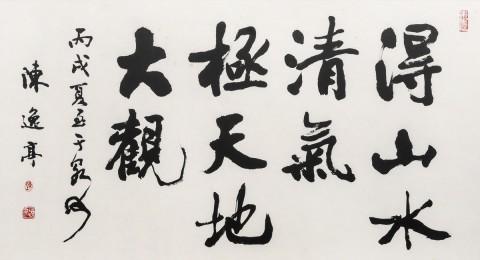 得山水
清氣
極天地
大觀
丙戌夏至于泉州
陳逸亭